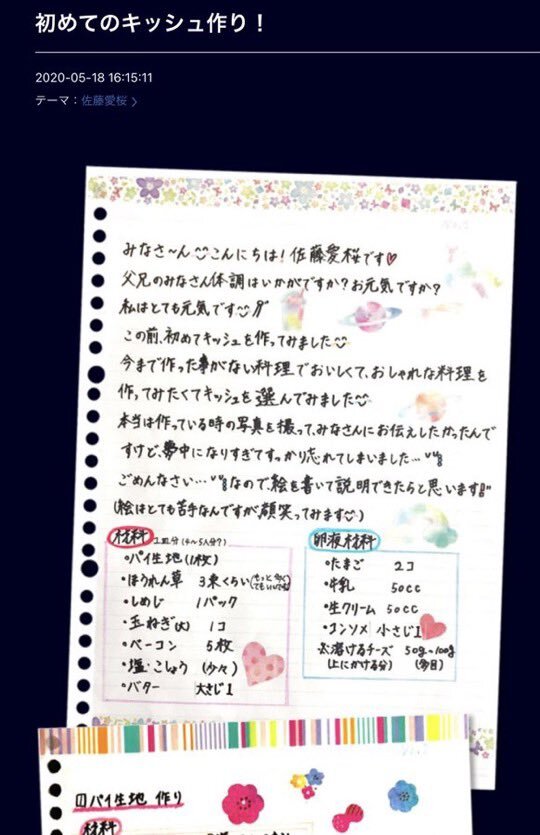 初めてのキッシュ作り！
2020-05-18 16:15:11
テーマ：佐藤愛桜
みなさ〜んこんにちは！佐藤愛桜です♡
父兄のみなさん体調はいかがですか？お元気ですか？
私はとても元気です
この前、初めてキッシュを作ってみました
今まで作った事がない料理でおいしくて、おしゃれな料理を
作ってみたくてキッシュを選んでみました
本当は作っている時の写真を撮って、みなさんにお伝えしたかったんで
すけど、夢中になりすぎてすっかり忘れてしまいました…
ごめんなさい…なので、絵を書いて説明できたらと思います!!
(絵はとても苦手なんですが顔笑ってみます)
材料 1皿分(4〜5人分?)
・パイ生地(1枚)
・ほうれん草 3束くらい(もっと多くてもいいです)
・しめじ 1パック
・玉ねぎ(大) 1コ
・ベーコン 5枚
・塩・こしょう (少々)
・バター 大さじ1
卵液材料
・たまご 2コ
・牛乳 50cc
・生クリーム 50cc
・コンソメ 小さじ1
※溶けるチーズ 50g〜100g
(上にかける分) (多目)
①パイ生地 作り
材料